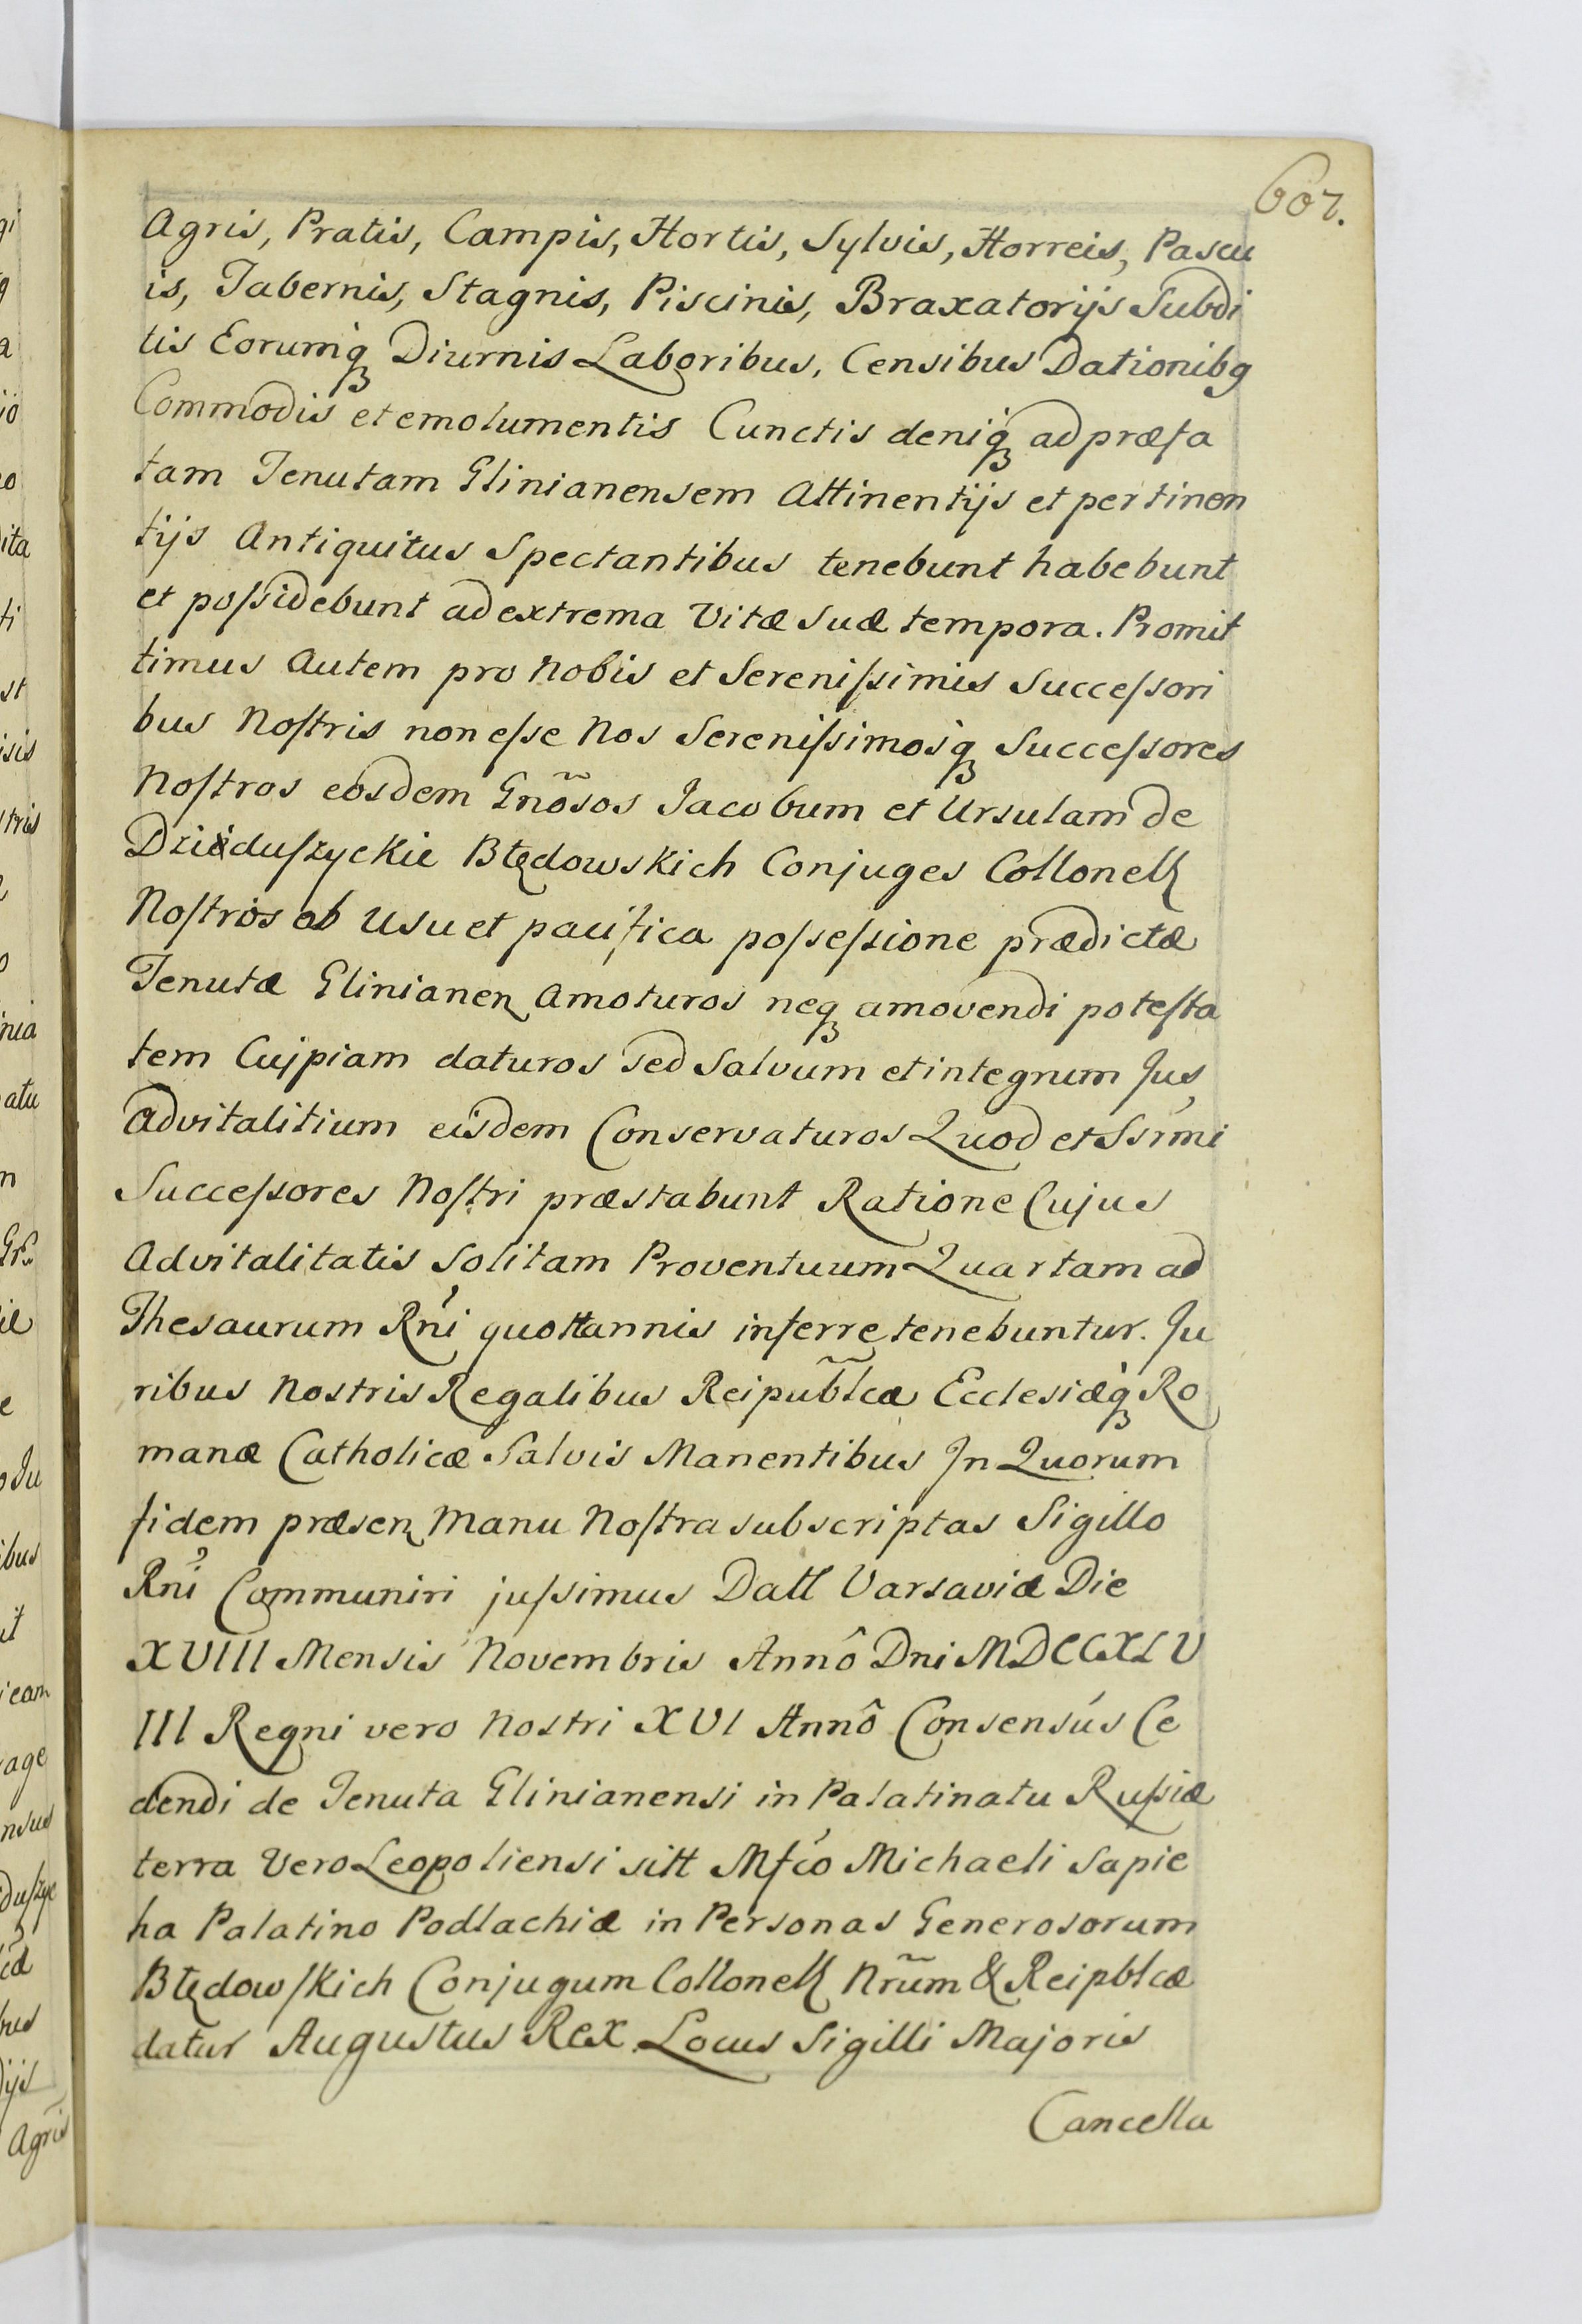 607.
Agris, Pratis, Campis, Hortis, Sylvis, Horreis, Pascu
is, Tabernis, Stagnis, Piscinis, Braxatorijs Subdi
tis Eorumq̨ Diurnis Laboribus, Censibus Dationibg
Commodis et emolumentis Cunctis deniq̨ ad præfa
tam Tenutam Glinianensem Attinentijs et pertinen
tijs Antiquitus Spectantibus tenebunt habebunt
et poſsidebunt ad extrema Vitæ suæ tempora. Promit
timus Autem pro Nobis et Sereniſsimis Succeſsori
bus Noſtris non eſse Nos Sereniſsimosq̨ Succeſsores
Noſtros eosdem Gnõsos Jacobum et Ursulam de
Dzieduſzyckie Błędowskich Conjuges Collonell
Noſtros ab Usu et pacifica poſseſsione prædictæ
Tenutæ Glinianen amoturos neq̨ amovendi poteſta
tem Cujpiam daturos sed Salvum et integrum Jus
Advitalitium eisdem Conservaturos Quod et Ssimi
Succeſsores Noſtri præstabunt Ratione Cujus
Advitalitatis Solitam Proventuum Quartam ad
Thesaurum Rni quottannis inferre tenebuntur. Ju
ribus Nostris Regalibus Reipub̃lcæ Ecclesiæq̨ Ro
manæ Catholicæ Salvis Manentibus Jn Quorum
fidem præsen Manu Noſtra subscriptas Sigillo
Rni Communiri juſsimus Datt Varsaviæ Die
XVIII Mensis Novembris Annô Dni MDCCXLV
III Regni vero Nostri XVI Annô Consensús Ce
dendi de Tenuta Glinianensi in Palatinatu Ruſsiæ
terra Vero Leopoliensi sitt Mfco Michaeli Sapie
ha Palatino Podlachiæ in Personas Generosorum
Błędowſkich Conjugum Collonell Nrũm & Reipblcæ
datur Augustus Rex. Locus Sigilli Majoris
Cancella